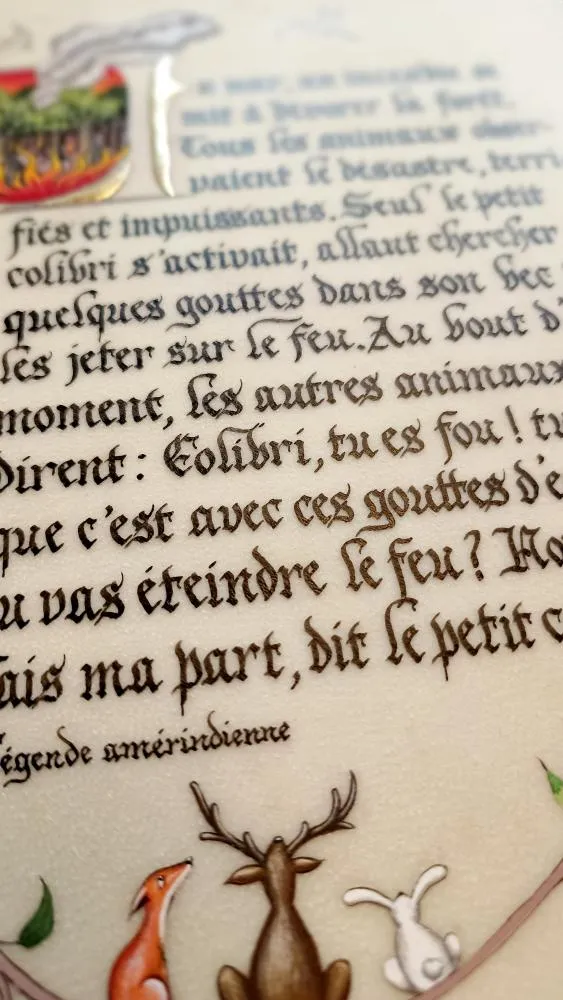 un incendie se
mit à dévorer la forêt.
Tous les animaux obser-
vaient le désastre, terri
fiés et impuissants. Seul le petit
colibri s'activait, allant chercher
quelques gouttes dans son bec
les jeter sur le feu. Au bout d'
moment, les autres animaux
dirent : Colibri, tu es fou ! tu
que c'est avec ces gouttes d'e
u vas éteindre le feu ? No
ais ma part, dit le petit c
égende amérindienne